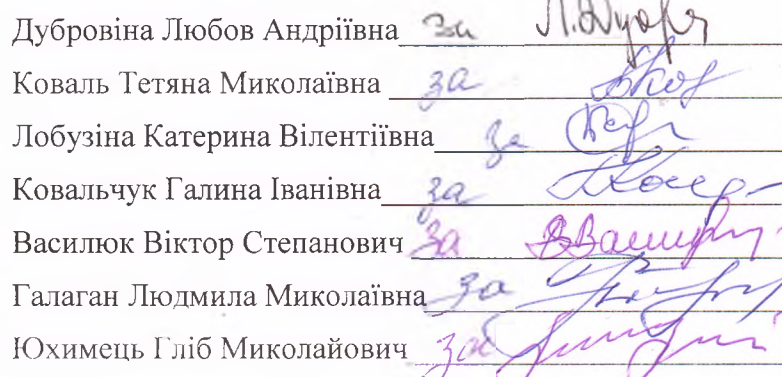 Дубровіна Любов Андріївна за
Коваль Тетяна Миколаївна за
Лобузіна Катерина Вілентіївна за
Ковальчук Галина Іванівна за
Василюк Віктор Степанович за
Галаган Людмила Миколаївна за
Юхимець Гліб Миколайович за